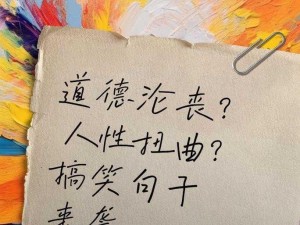 道德沦丧?
人性扭曲?
搞笑句子
来袭